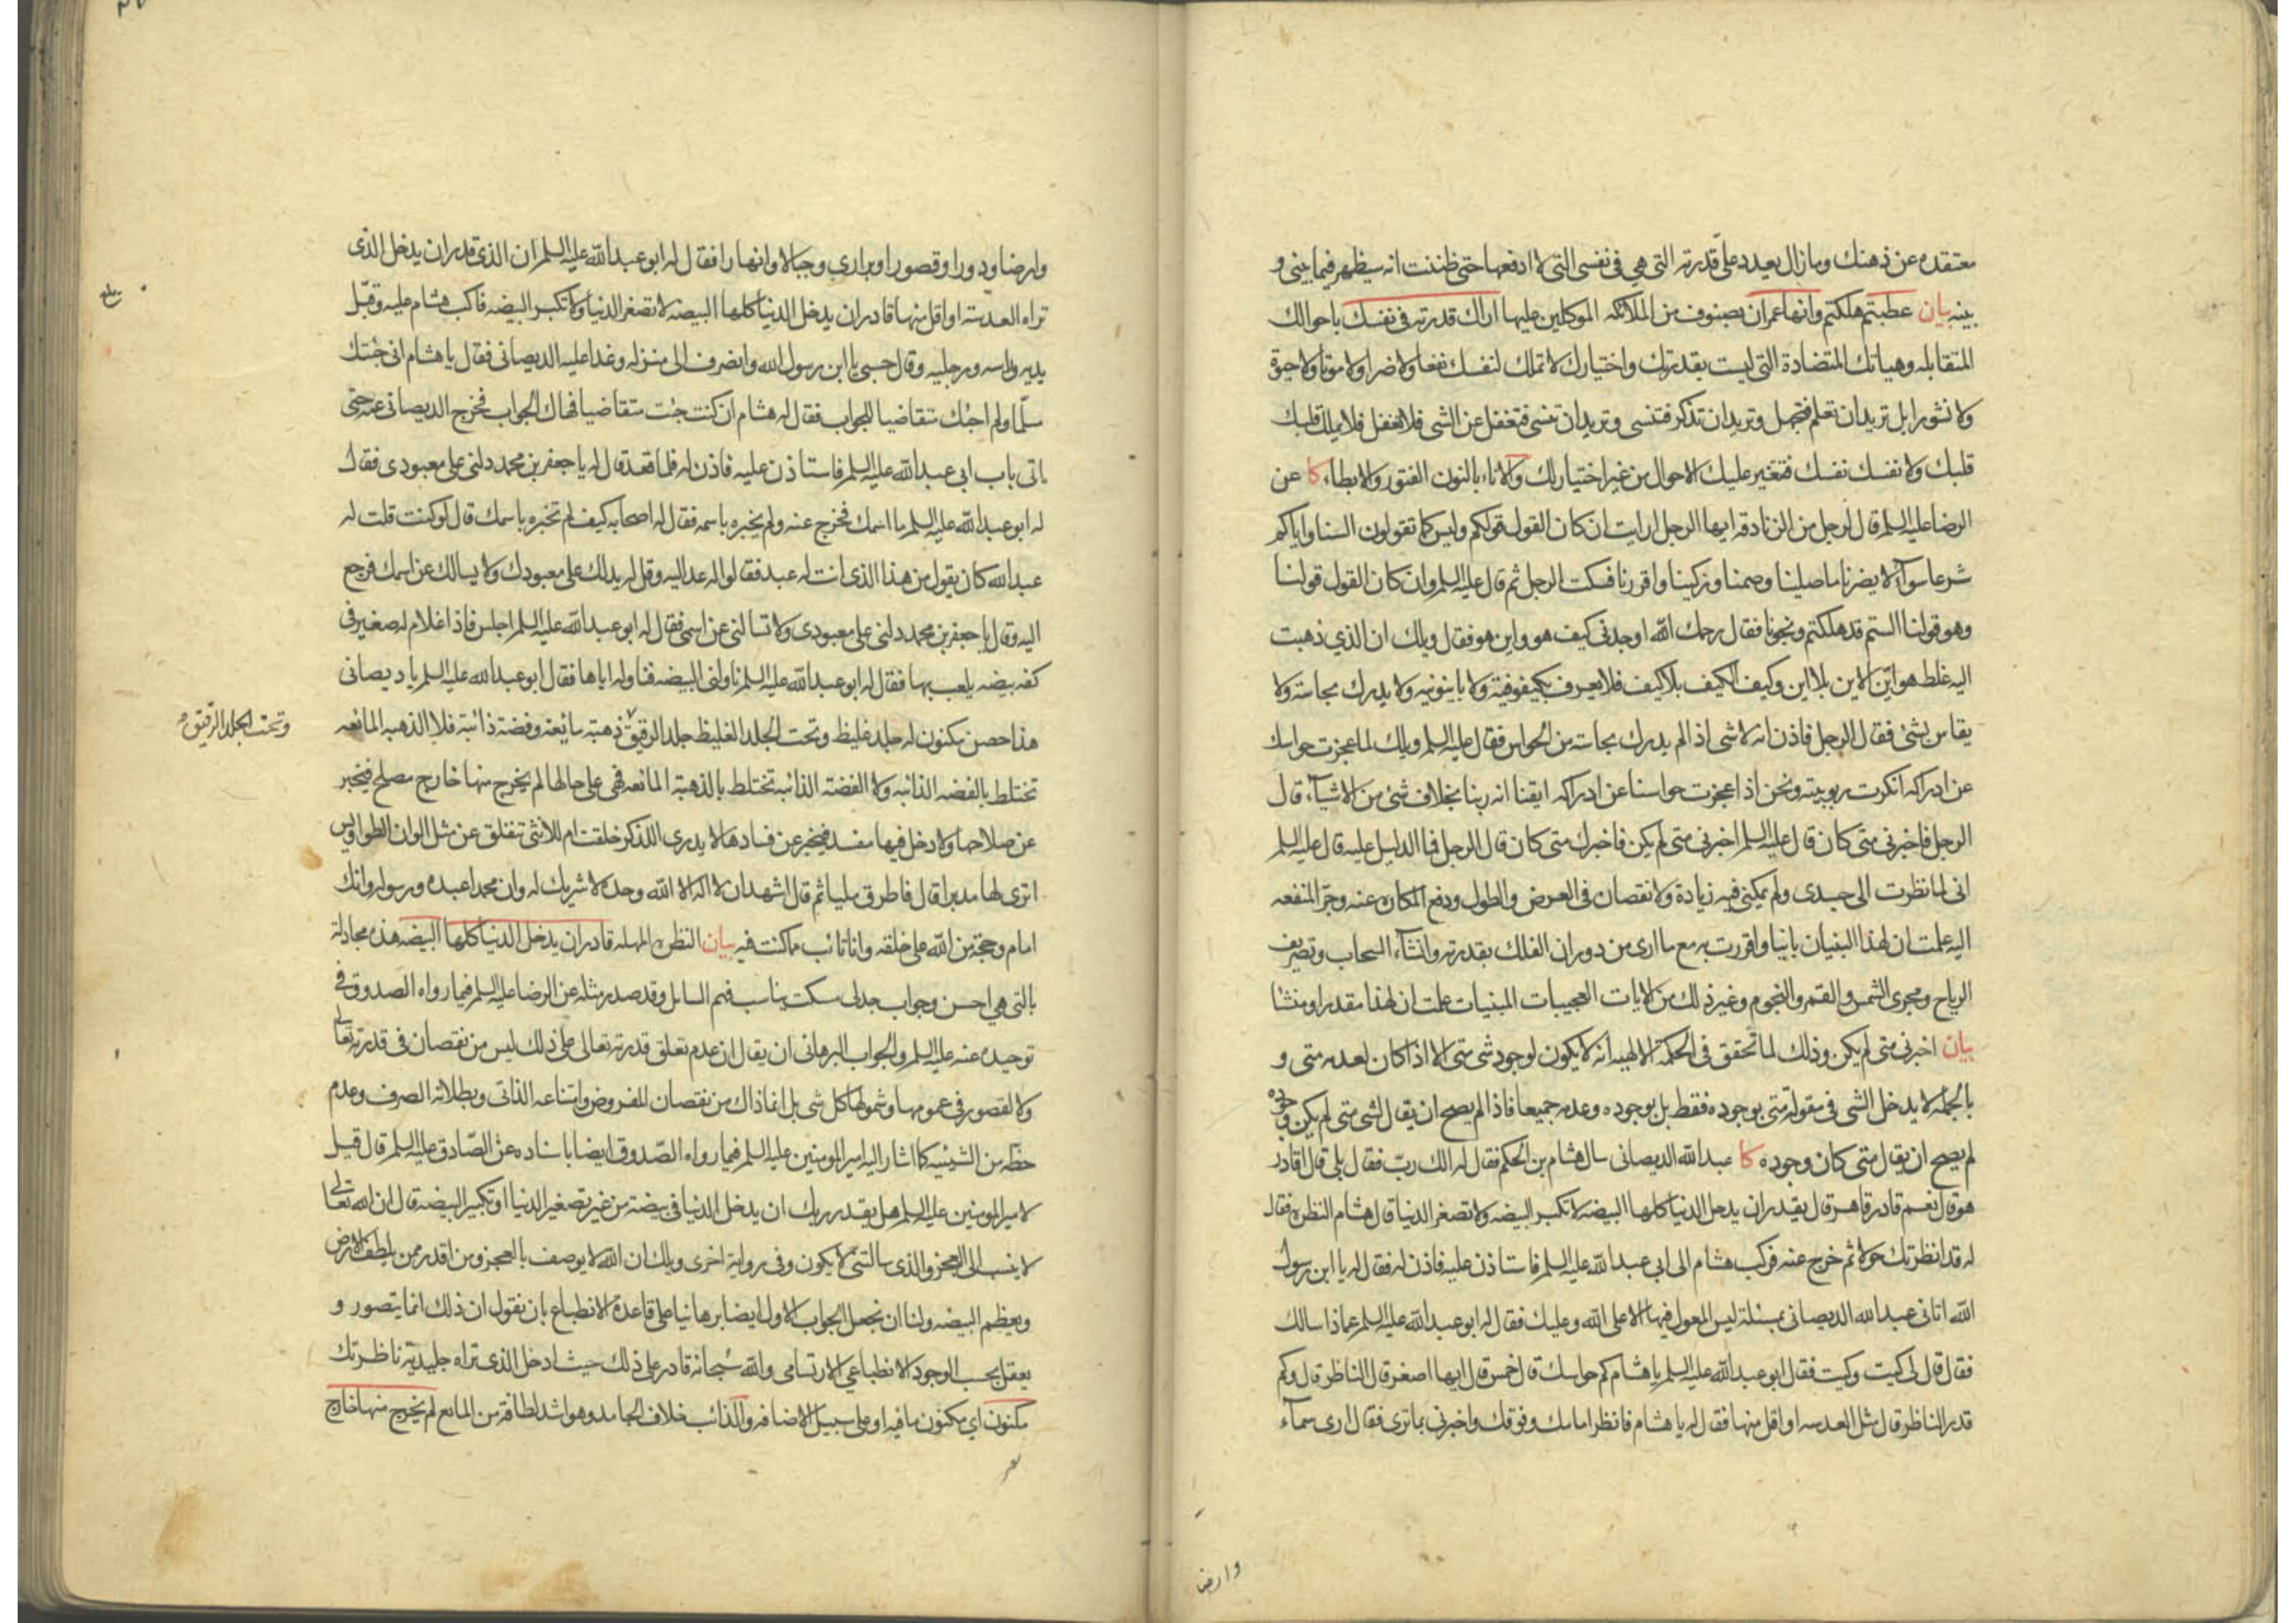 معتقده عن ذهنك وما زال يعدد علي قدرته التي هي في نفسي التي لا ادفعها حتى ظننت انه سيظهر فيما بيني و
بينه بيان عطبتم هلكتم وانها عمران بصنوف من الملائكه الموكلين عليها اراك قدرته في نفسك باحوالك
المتقابله وهياتك المتضادة التي ليست بقدرتك واختيارك لا تملك لنفسك نفعا ولا ضرا ولا موتا ولا حيوة
ولا نشورا بل تريد ان تعلم فتجهل وتريد ان تذكر فتنسى وتريد ان تنسى فتغفل عن الشي فلا تغفل فلا يملك قلبك
قلبك ولا نفسك نفسك فتتغير عليك الاحوال من غير اختيارك والاناء بالنون الفتور والابطاء كا عن
الرضا عليه السلم قال لرجل من الزنادقه ايها الرجل ارايت ان كان القول قولكم وليس كما تقولون السنا واياكم
شرعا سوآء لا يضرنا ما صلينا وصمنا وزكينا واقررنا فسكت الرجل ثم قال عليه السلم وان كان القول قولنا
وهو قولنا الستم قد هلكتم ونجونا فقال رحمك الله اوجدني كيف هو واين هو فقال ويلك ان الذي ذهبت
اليه غلط هو ايّن الاين بلا اين وكيف الكيف بلا كيف فلا يعرف بكيفوفية ولا باينونيه ولا يدرك بحاسة ولا
يقاس بشئ فقال الرجل فاذن انه لا شئ اذا لم يدرك بحاسته من الحواس فقال عليه السلم ويلك لما عجزت حواسك
عن ادراكه انكرت ربوبيته ونحن اذا عجزت حواسنا عن ادراكه ايقنا انه ربنا بخلاف شئ من الاشيآء قال
الرجل فاخبرني متى كان قال عليه السلم اخبرني متى لم يكن فاخبرك متى كان قال الرجل فما الدليل عليه قال عليه السلم
اني لما نظرت الى جسدى ولم يمكني فيه زيادة ولا نقصان في العرض والطول ودفع المكاره عنه وجرّ المنفعه
اليه علمت ان لهذا البنيان بانيا واقررت به مع ما ارى من دوران الفلك بقدرته وانشآء السحاب وتصريف
الرياح ومجرى الشمس والقمر والنجوم وغير ذلك من الايات العجيبات المبنيات علمت ان لهذا مقدرا ومنشئا
بيان اخبرني متى لم يكن وذلك لما تحقق في الحكمة الالهيه انه لا يكون لوجود شئ متى الا اذا كان لعدمه متى و
بالجمله لا يدخل الشئ في مقولة متى بوجوده فقط بل بوجوده وعدمه جميعا فاذا لم يصح ان يقال لشئ متى لم يكن وجوده
لم يصح ان يقال متى كان وجوده كا عبد الله الديصاني سال هشام بن الحكم فقال له الك ربّ فقال بلى قال اقادر
هو قال نعم قادر قاهر قال يقدر ان يدخل الدنيا كلها البيضه لا تكبر البيضه ولا تصغر الدنيا قال هشام النظره فقال
له قد انظرتك حولا ثم خرج عنه فركب هشام الى ابي عبد الله عليه السلم فاستاذن عليه فاذن له فقال له يا ابن رسول
الله اتاني عبد الله الديصاني بمسئلة ليس المعول فيها الا على الله وعليك فقال له ابو عبد الله عليه السلم عماذا سالك
فقال قال لي كيت وكيت فقال ابو عبد الله عليه السلم يا هشام كم حواسك قال خمس قال ايها اصغر قال الناظر قال وكم
قدر الناظر قال مثل العدسه او اقل منها فقال له يا هشام فانظر امامك وفوقك واخبرني بما ترى فقال ارى سمآء
وارض
وارضا ودورا وقصورا وبراري وجبالا وانهارا فقال له ابو عبد الله عليه السلم ان الذي قدر ان يدخل الذى
تراه العدسة او اقل منها قادر ان يدخل الدنيا كلها البيضه لا تصغر الدنيا ولا تكبر البيضه فاكب هشام عليه وقبّل
يديه وراسه ورجليه وقال حسبي يا ابن رسول الله وانصرف الى منزله وغدا عليه الديصاني فقال يا هشام اني جئتك
مسلّما ولم اجئك متقاضيا للجواب فقال له هشام ان كنت جئت متقاضيا فهاك الجواب فخرج الديصاني عنه حتى
اتى باب ابي عبد الله عليه السلم فاستاذن عليه فاذن له فلما قعد قال له يا جعفر بن محمد دلني على معبودى فقال
له ابو عبد الله عليه السلم ما اسمك فخرج عنه ولم يخبره باسمه فقال له اصحابه كيف لم تخبره باسمك قال لو كنت قلت له
عبد الله كان يقول من هذا الذى انت له عبد فقالوا له عد اليه وقل له يدلك على معبودك ولا يسالك عن اسمك فرجع
اليه وقال يا جعفر بن محمد دلني على معبودى ولا تسالني عن اسمي فقال له ابو عبد الله عليه السلم اجلس فاذا غلام له صغير في
كفه بيضه يلعب بها فقال له ابو عبد الله عليه السلم ناولني البيضه فناوله اياها فقال ابو عبد الله عليه السلم يا ديصاني
هذا حصن مكنون له جلد غليظ وتحت الجلد الغليظ جلد الرقيق ذهبة مايعة وفضة ذائبة فلا الذهبه المائعه
وتحت الجلد الرّقيق
تختلط بالفضه الذائبه ولا الفضة الذائبه تختلط بالذهبة المائعه فهي على حالها لم يخرج منها خارج مصلح فيخبر
عن صلاحها ولا دخل فيها مفسد فيخبر عن فسادها لا يدرى اللذكر خلقت ام للانثى تنفلق عن مثل الوان الطواويس
اترى لها مدبرا قال فاطرق مليا ثم قال اشهد ان لا اله الا الله وحده لا شريك له وان محمدا عبده ورسوله وانك
امام وحجة من الله على خلقه وانا تائب مما كنت فيه بيان النظره المهله قادر ان يدخل الدنيا كلها البيضه هذه مجادلة
بالتى هي احسن وجواب جدلى مسكت يناسب فهم السايل وقد صدر مثله عن الرضا عليه السلم فيما رواه الصدوق في
توحيده عنه عليه السلم والجواب البرهاني ان يقال ان عدم تعلق قدرته تعالى على ذلك ليس من نقصان في قدرته تعالى
ولا لقصور في عمومها وشمولها كل شئ بل انما ذاك من نقصان المفروض وامتناعه الذاتى وبطلانه الصرف وعدم
حظّه من الشيئيه كما اشار اليه امير المومنين عليه السلم فيما رواه الصّدوق ايضا باسناده عن الصّادق عليه السلم قال قيل
لامير المومنين عليه السلم هل يقدر ربك ان يدخل الدنيا في بيضة من غير تصغير الدنيا او تكبير البيضه قال ان الله تعالى
لا ينسب الى العجز والذى سالتني لا يكون وفي رواية اخرى ويلك ان الله لا يوصف بالعجز ومن اقدر ممن يلطف الارض
ويعظم البيضه ولنا ان نجعل الجواب الاول ايضا برهانيا على قاعدة الانطباع بان نقول ان ذلك انما يتصور و
يعقل بحسب الوجود الانطباعي الارتسامي والله سبحانه قادر على ذلك حيث ادخل الذى تراه جليدية ناظرتك
مكنون اي مكنون ما فيه او على سبيل الاضافه والذائب خلاف الجامد وهو اشد لطافة من المايع لم يخرج منها خارج